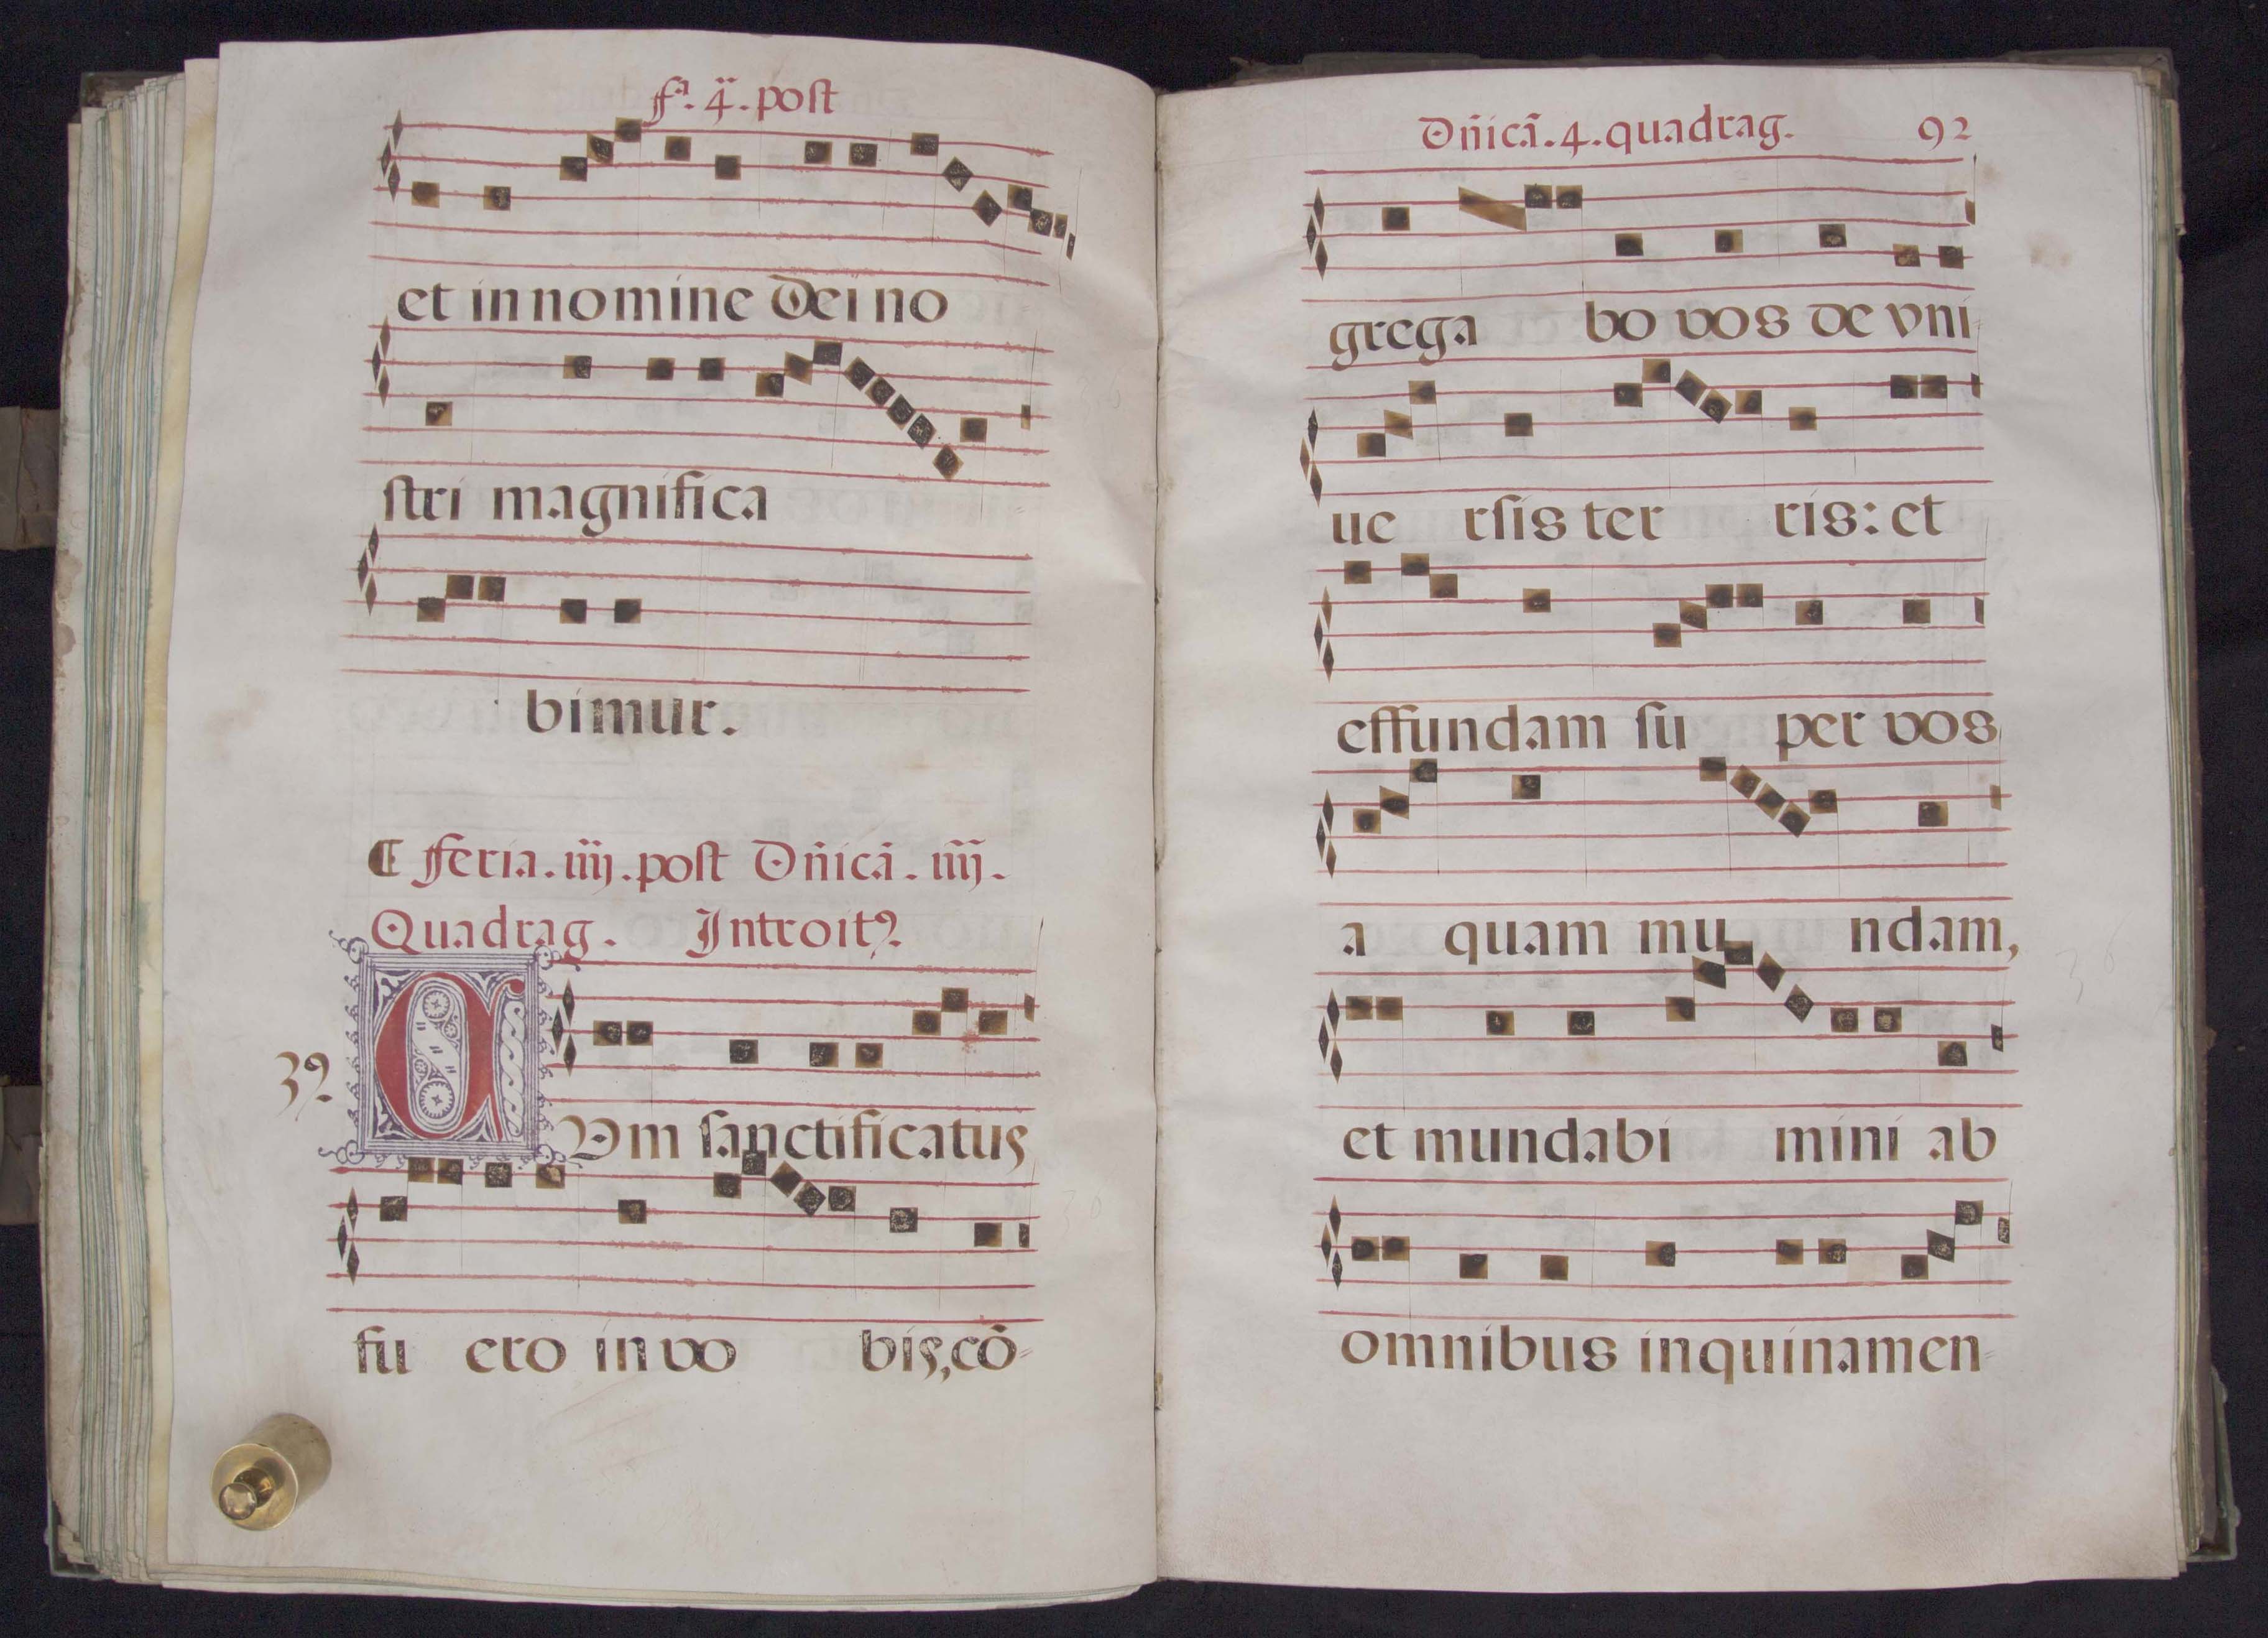 fª. 4ª. post
et in nomine Dei no
stri magnifica
bimur.
¶ feria. iiij. post Dñicã. iiij.
Quadrag. Introitꝰ
39.
CVm sanctificatus
fu ero in vo bis, cō-
Dñicã. 4. quadrag. 92
grega bo vos de vni-
ue rsis ter ris: et
effundam su per vos
a quam mu ndam,
et mundabi mini ab
omnibus inquinamen-